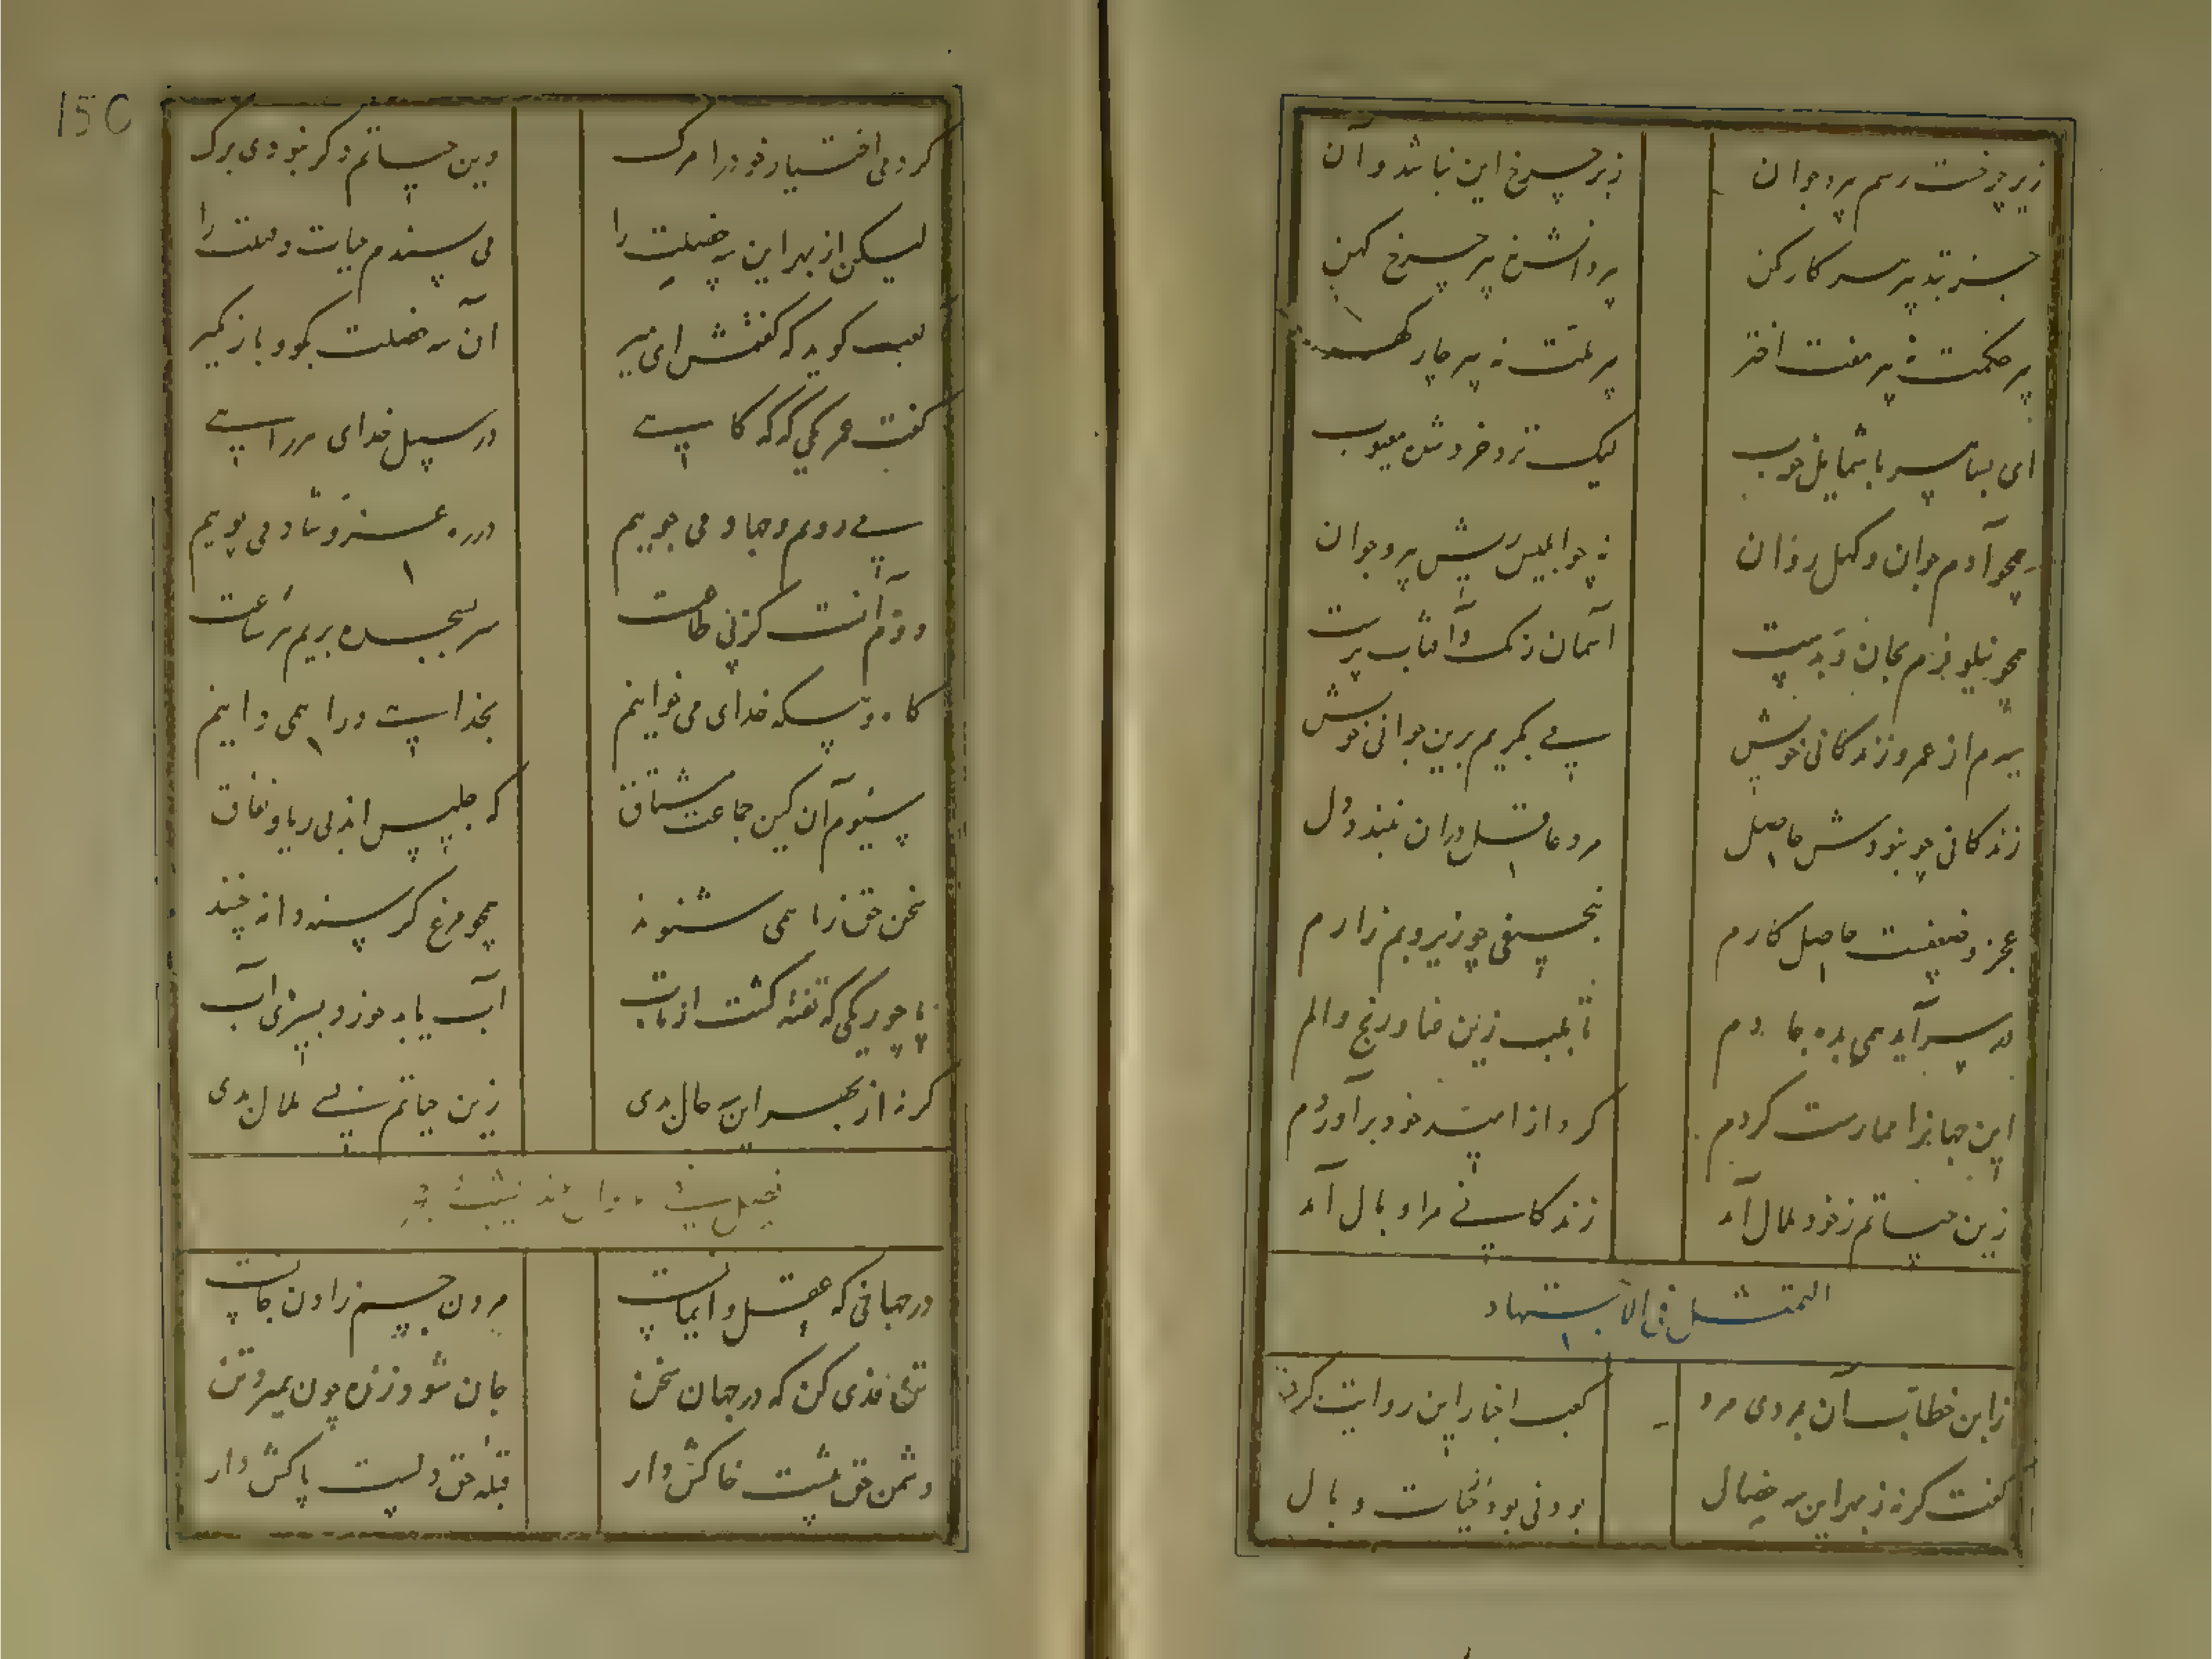 زیر چرخست رسم پیر و جوان
زبر چرخ این نباشد و آن
جز بتدبیر پیر کار مکن
پیر دانش نه پیر چرخ کهن
پیر حکمت نه پیر هفت اختر
پیر ملت نه پیر چار گهر
ای بسا پیر با شمایل خوب
لیک نزد خرد شده معیوب
همچو آدم جوان و کهل روان
نه چو ابلیس ریش پیر و جوان
همچو نیلوفرم بجان و بدست
آسمان رنگ و آفتاب پرست
سیرم از عمر و زندگانی خویش
می بگریم برین جوانی خویش
زندگانی چو نبودش حاصل
مرد عاقل دران نبندد دل
عجز و ضعفست حاصل کارم
نحسبقی چو زیر و بم زارم
بسر آید همی بده جا دم
تا بلب زین عنا و رنج و الم
این جهانرا ممارست کردم
گرد از امید خود برآوردم
زین حیاتم ز خود ملال آمد
زندگانی مرا وبال آمد
التمثل فی الاستشهاد
زابن خطاب آن بمردی مرد
کعب احبار این روایت کرد
گفت گر نه ز بهر این سه خصال
بودنی بود حیات وبال
کردمی اختیار خود را مرگ
وین حیاتم دگر نبودی برگ
لیکن از بهر این سه خصلت را
می پسندم حیات و مهلت را
کعب گوید که گفتمش ای میر
آن سه خصلت بگو و باز مگیر
گفت عمر یکی که گه گاهی
در سبیل خدای هر راهی
می رویم و جهاد می جوییم
در ره عز و شاد می پوییم
دوم آنست کز پی طاعت
سر بسجده بریم هر ساعت
گاه و بیگه خدای می خوانیم
بخداییت ورا همی دانیم
سیوم آن کین جماعت مشتاق
که جلیس اند بی ریا و نفاق
سخن حق ز ما همی شنوند
همچو مرغ گرسنه دانه چنند
یا چو ریگی که تفته گشت از تاب
آب یابد خورد بسیری آب
گر نه از بهر این سه حال بدی
زین حیاتم بسی ملال بدی
در جهانی که عقل و ایمانست
مردن جسم زادن جانست
تن فدی کن که در جهان سخن
جان شود زنده چون بمیرد تن
دشمن حق تنست خاکش دار
قبله حق دلست پاکش دار